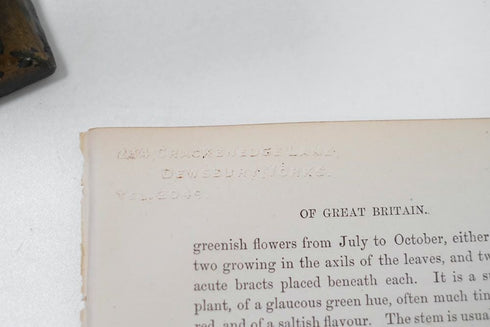 CRACKENEDGE LANE,
DEWSBURY, YORKS.
TEL. 2049.
OF GREAT BRITAIN.
greenish flowers from July to October, either
two growing in the axils of the leaves, and tw
acute bracts placed beneath each. It is a s
plant, of a glaucous green hue, often much tin
red, and of a saltish flavour. The stem is usua